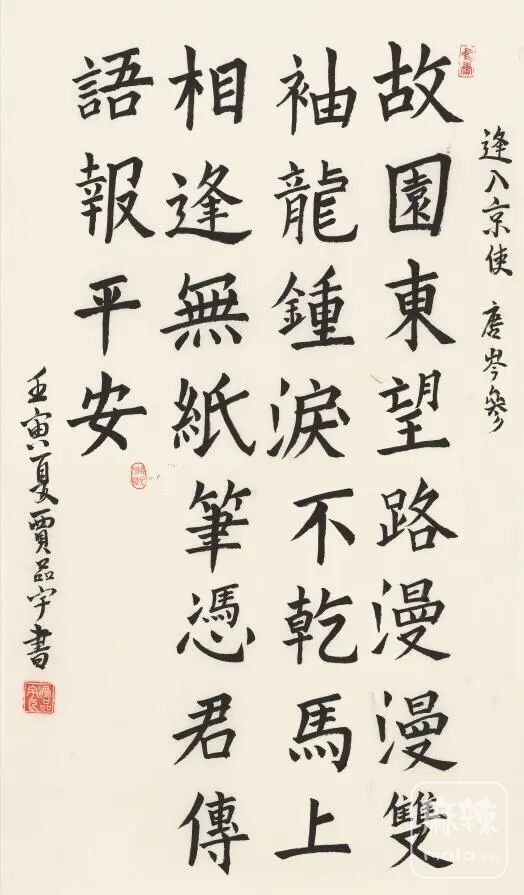 逢入京使 唐岑參
故園東望路漫漫雙
袖龍鍾淚不乾馬上
相逢無紙筆憑君傳
語報平安
壬寅夏賈品宇書
麻辣
mala.cn